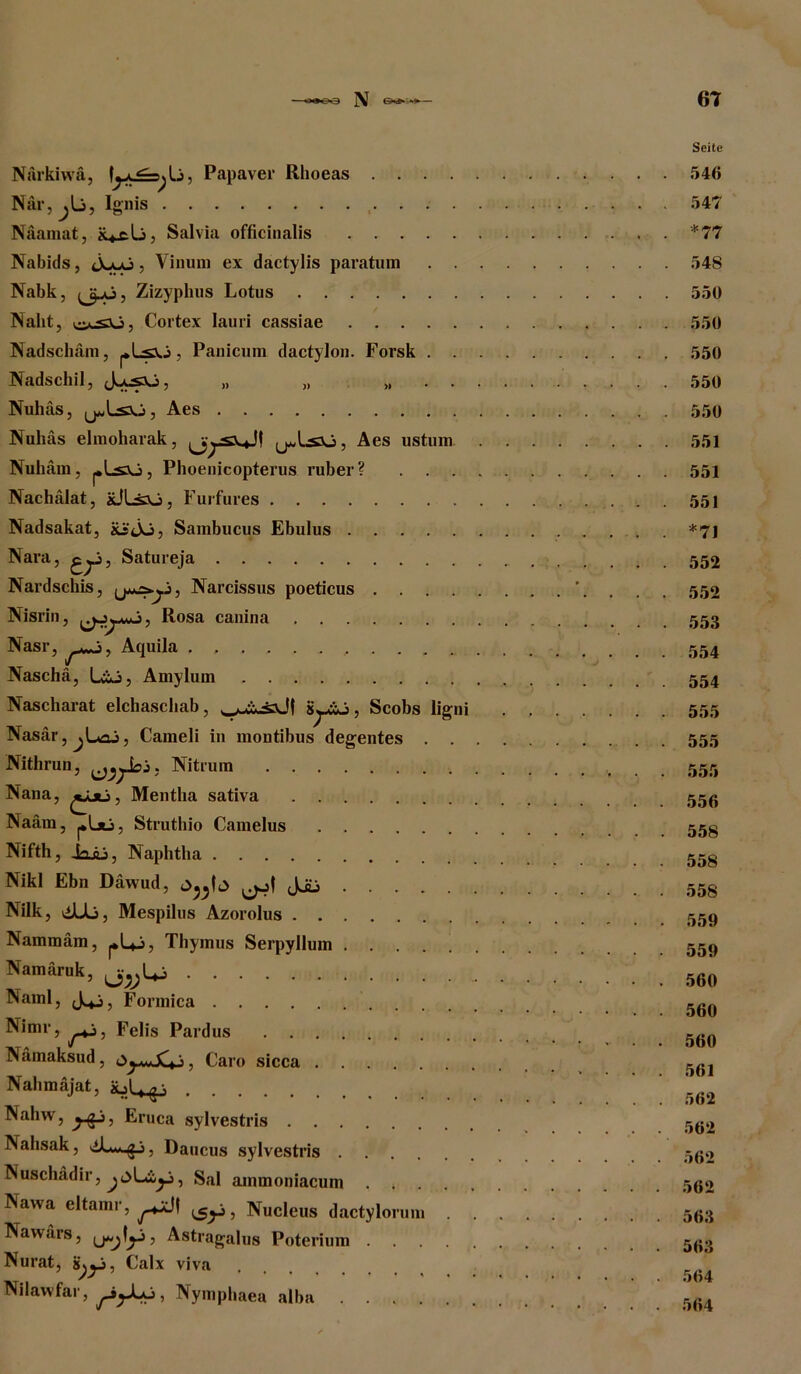 N 67
Seite
Nârkiwâ, ناركيوا, Papaver Rhoeas . . . 546
Nâr, نار, Ignis . . . 547
Nâamat, ناعمة, Salvia officinalis . . . *77
Nabids, نبيذ, Vinum ex dactylis paratum . . . 548
Nabk, نبق, Zizyphus Lotus . . . 550
Naht, نحت, Cortex lauri cassiae . . . 550
Nadschâm, نجام, Panicum dactylon. Forsk . . . 550
Nadschil, نجيل, „ „ „ . . . 550
Nuhâs, نحاس, Aes . . . 550
Nuhâs elmoharak, نحاس المحروق, Aes ustum . . . 551
Nuhâm, نحام, Phoenicopterus ruber? . . . 551
Nachâlat, نخالة, Furfures . . . 551
Nadsakat, ندكة, Sambucus Ebulus . . . *71
Nara, نرع, Satureja . . . 552
Nardschis, نرجس, Narcissus poeticus . . . 552
Nisrin, نسرين, Rosa canina . . . 553
Nasr, نسر, Aquila . . . 554
Naschâ, نشا, Amylum . . . 554
Nascharat elchaschab, نشرة الخشب, Scobs ligni . . . 555
Nasâr, نصار, Cameli in montibus degentes . . . 555
Nithrun, نطرون, Nitrum . . . 555
Nana, نعنع, Mentha sativa . . . 556
Naâm, نعام, Struthio Camelus . . . 558
Nifth, نفط, Naphtha . . . 558
Nikl Ebn Dâwud, نقل ابن داوود . . . 558
Nilk, نلك, Mespilus Azorolus . . . 559
Nammâm, نمام, Thymus Serpyllum . . . 559
Namâruk, نماروق . . . 560
Naml, نمل, Formica . . . 560
Nimr, نمر, Felis Pardus . . . 560
Nâmaksud, نمكسود, Caro sicca . . . 561
Nahmâjat, نهماية . . . 562
Nahw, نهو, Eruca sylvestris . . . 562
Nahsak, نهسك, Daucus sylvestris . . . 562
Nuschâdir, نوشادر, Sal ammoniacum . . . 562
Nawa eltamr, نوى التمر, Nucleus dactylorum . . . 563
Nawârs, نوارس, Astragalus Poterium . . . 563
Nurat, نورة, Calx viva . . . 564
Nilawfar, نيلوفر, Nymphaea alba . . . 564